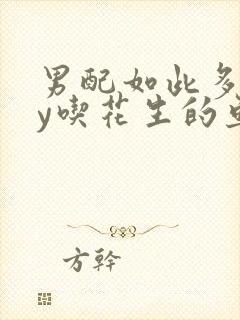 男配如此多
y喫花生的
方幹